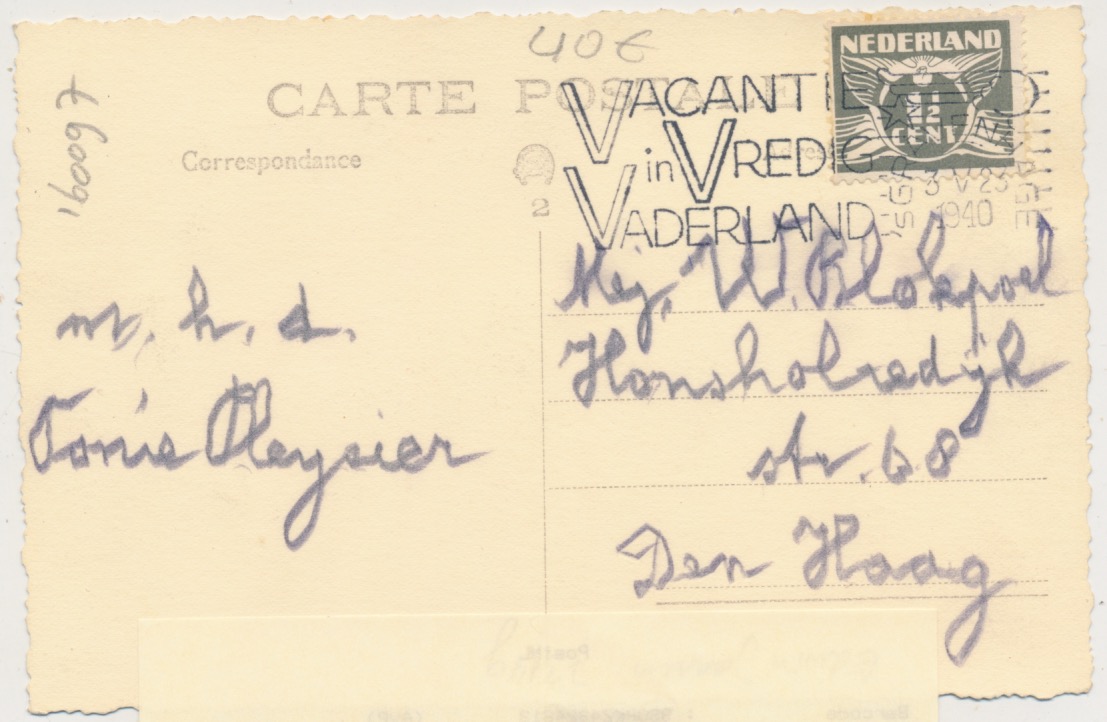 40 €
16009 7
CARTE POSTALE
Correspondance
Adresse
2
NEDERLAND
CENT
VACANTIE
in VREDIG
VADERLAND
'SGRAVENHAGE
3 V 23
1940
m. h. d.
Tonie Pleysier
Mej. W. Klokpoel
Honsholredijk
str. 68
Den Haag